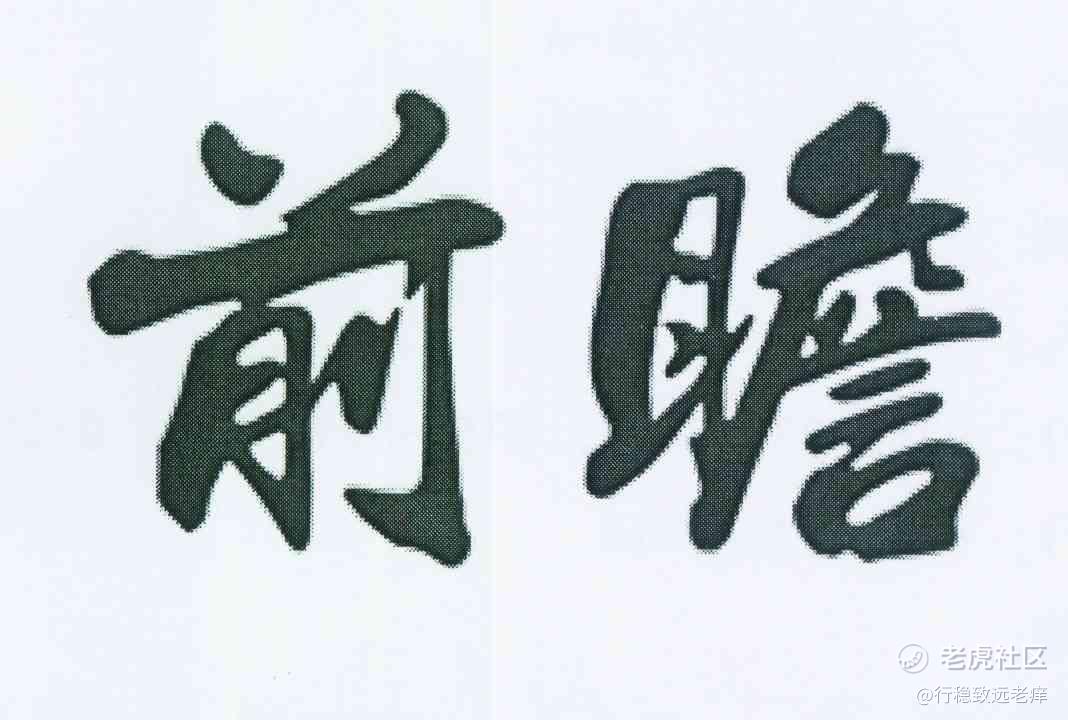 前瞻
老虎社区
@行稳致远老痒